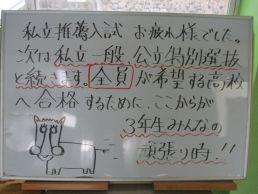 私立推薦入試 お疲れ様でした。
次は私立一般、公立特別選抜
と続きます。全員が希望する高校
へ合格するために、ここからが
3年生みんなの
頑張り時!!